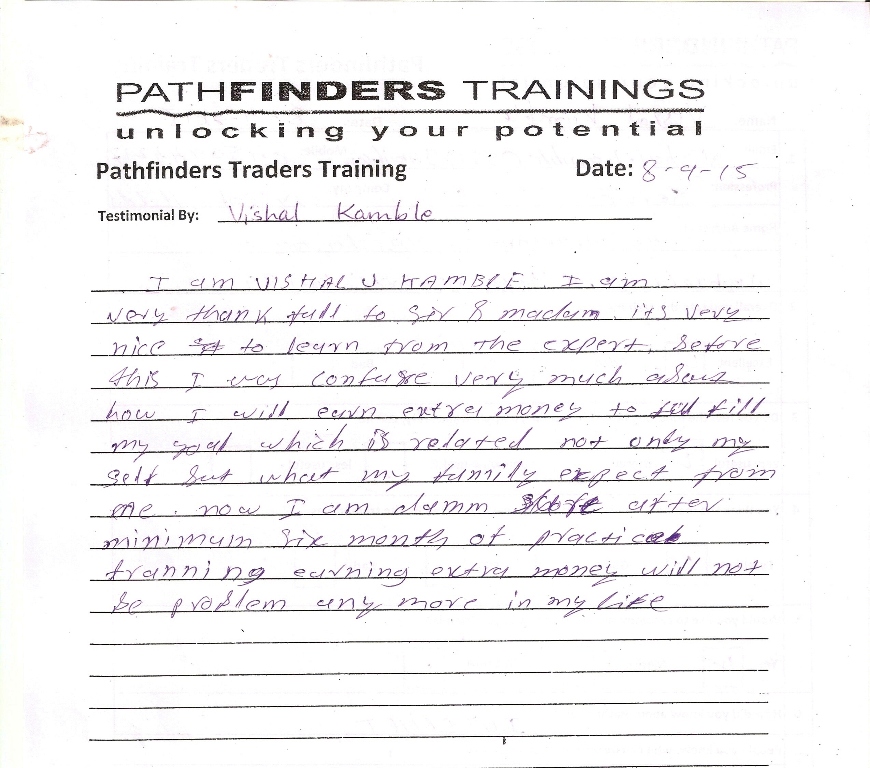 PATHFINDERS TRAININGS
unlocking your potential
Pathfinders Traders Training Date: 8-9-15
Testimonial By: Vishal Kamble
I am VISHAL J KAMBLE. I am
very thank full to Sir & madam its very
nice to learn from the expert. before
this I was confuse very much about
how I will earn extra money to fill
my goal which is related not only my
self but what my family expect from
me. now I am damm after
minimum six month of practical
tranning earning extra money will not
be problem any more in my life